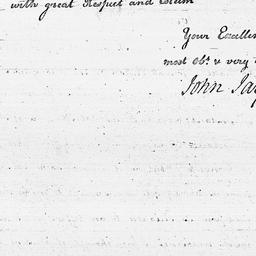 with great Respect and Esteem
Your Excellen
most Obt & very
John Jay